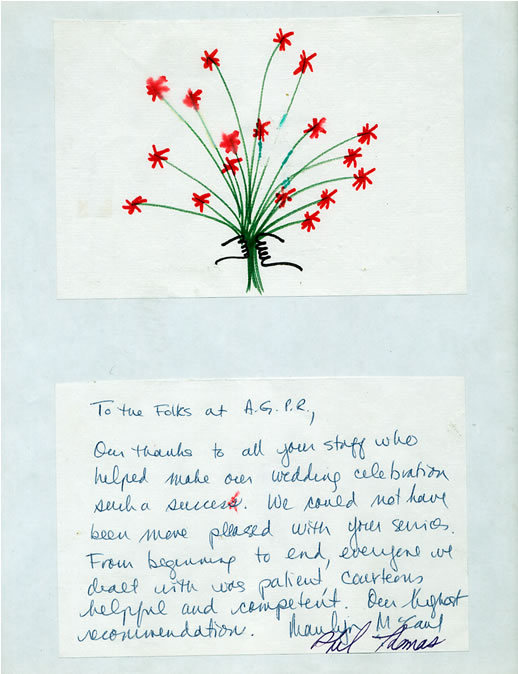 To the Folks at A.G.P.R.,
Our thanks to all your staff who
helped make our wedding celebration
such a success. We could not have
been more pleased with your services.
From beginning to end, everyone we
dealt with was patient, courteous
helpful and competent. Our highest
recommendation. Marilyn
Phil Thomas